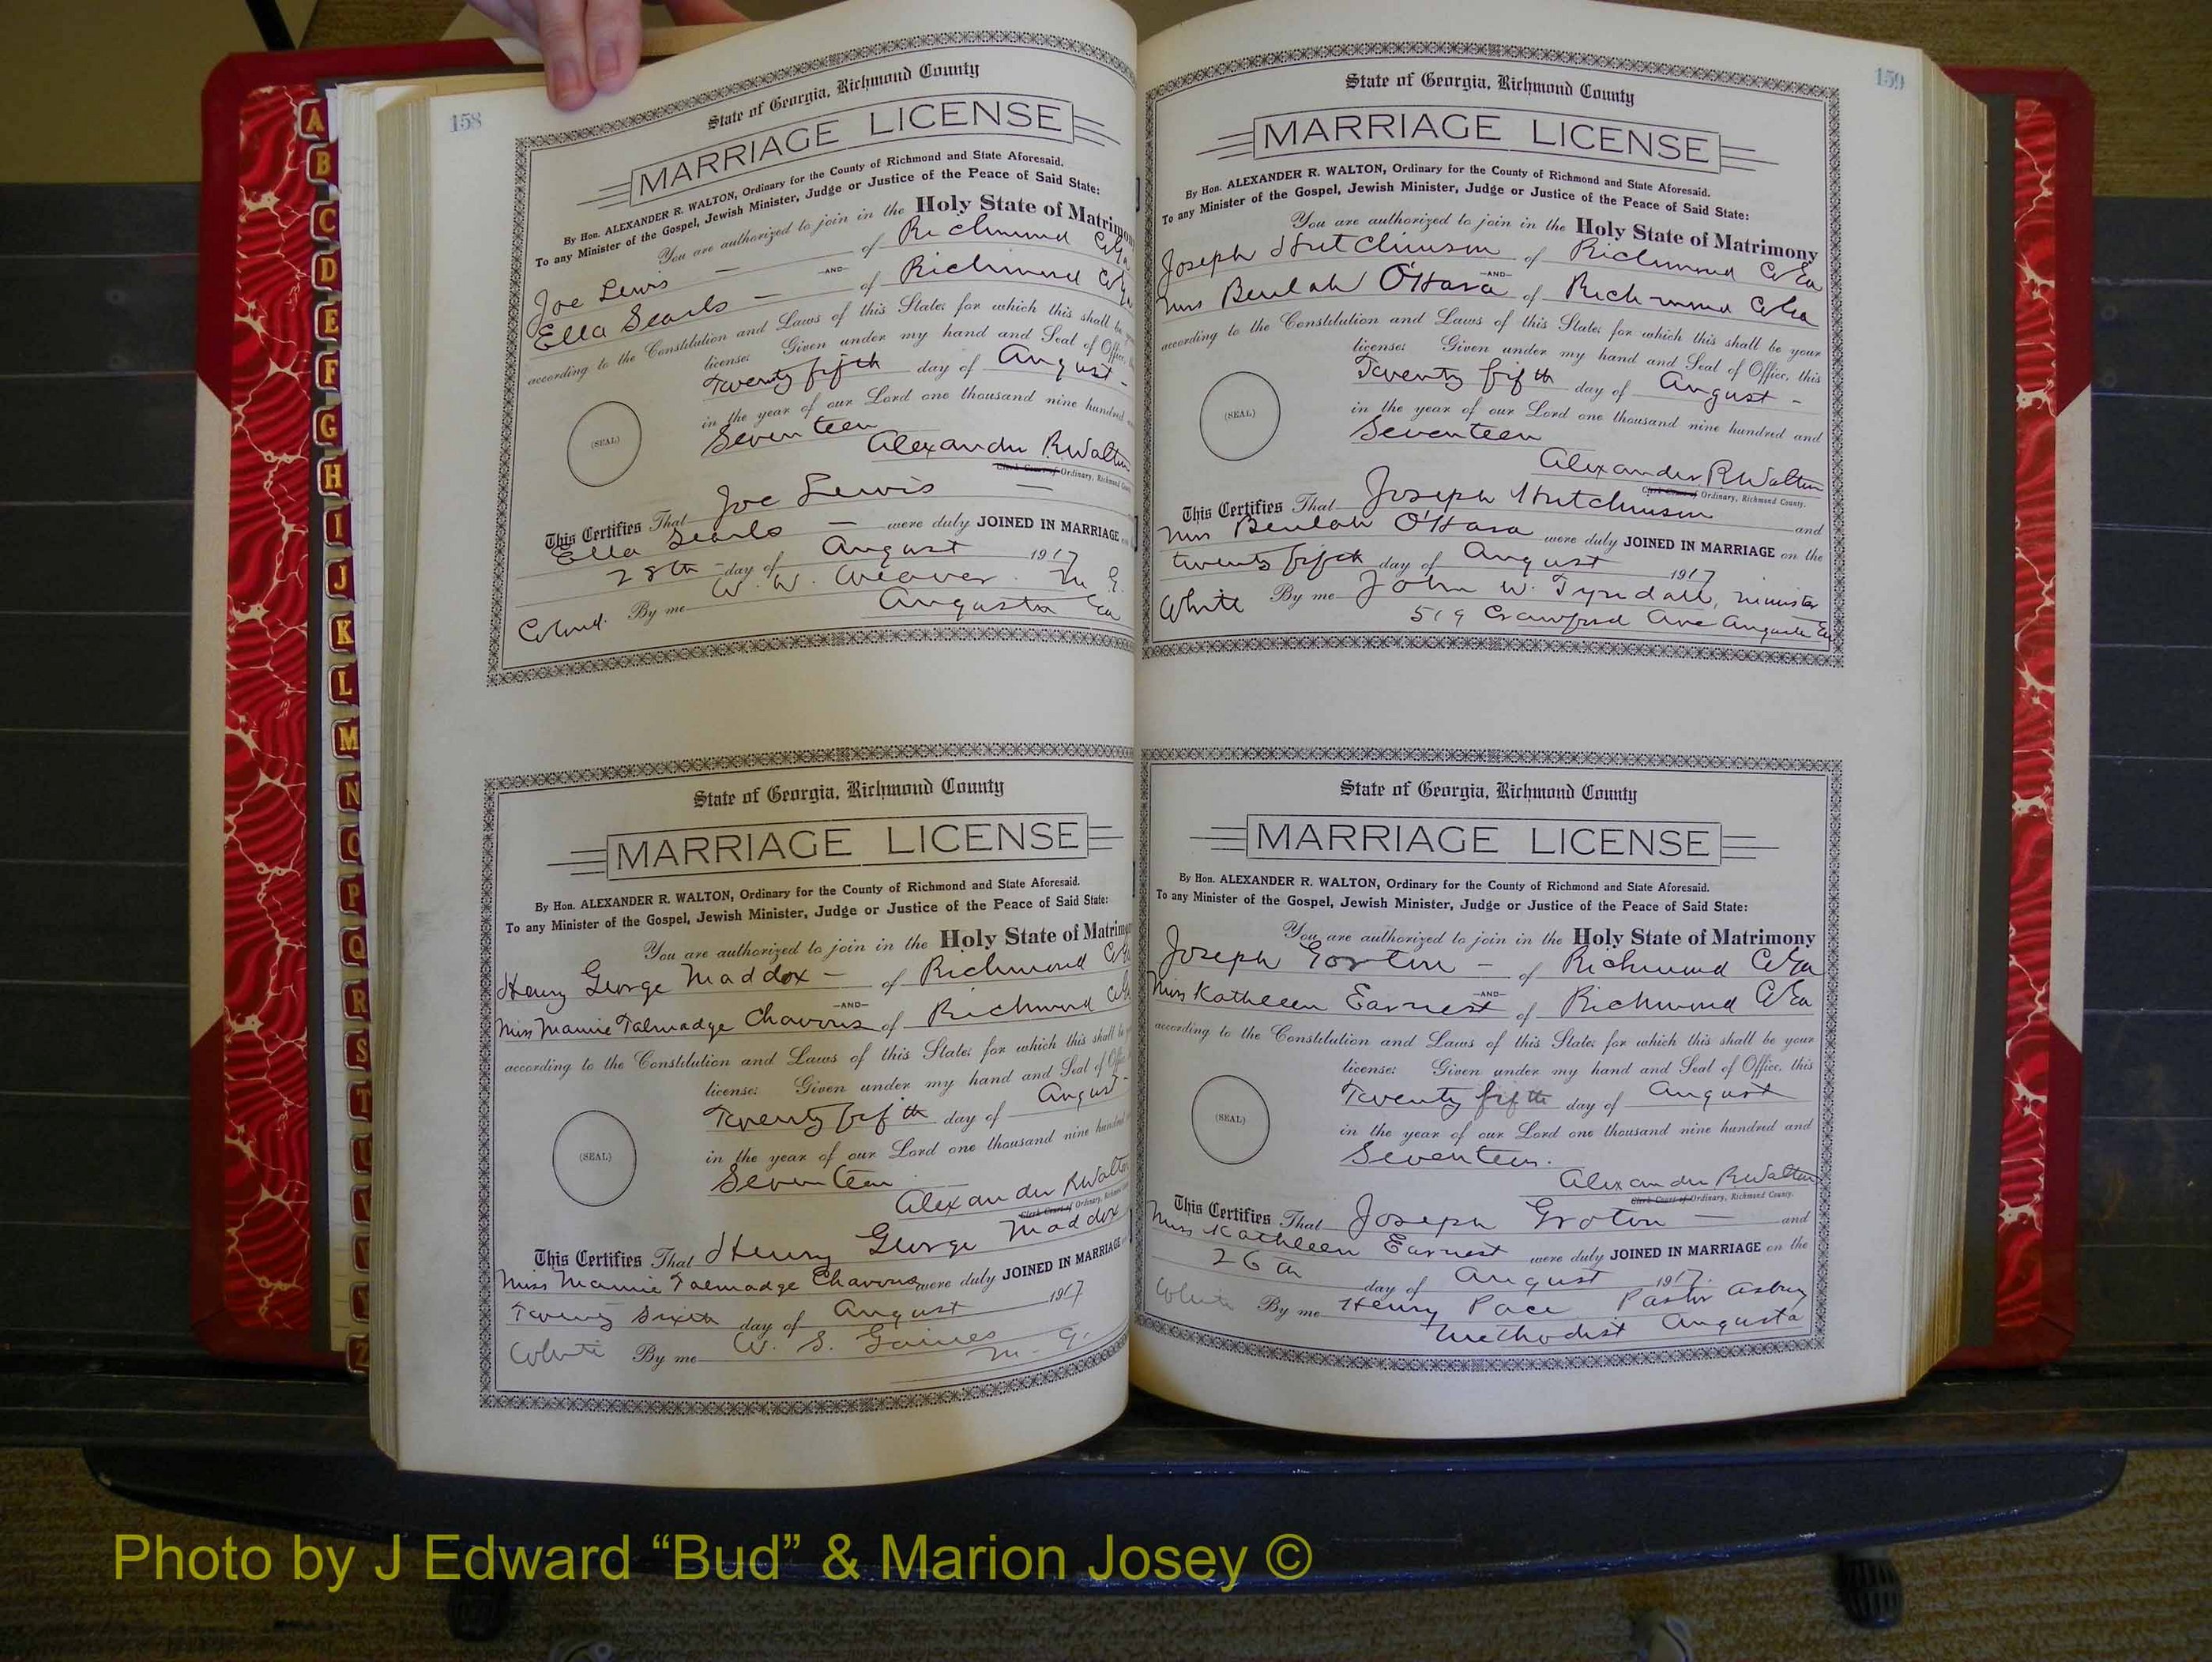 158
State of Georgia, Richmond County
MARRIAGE LICENSE
By Hon. ALEXANDER R. WALTON, Ordinary for the County of Richmond and State Aforesaid.
To any Minister of the Gospel, Jewish Minister, Judge or Justice of the Peace of Said State:
You are authorized to join in the Holy State of Matrimony
Joe Lewis — of Richmond Co Ga
—AND—
Ella Searls — of Richmond Co Ga
according to the Constitution and Laws of this State; for which this shall be your
license: Given under my hand and Seal of Office,
Twenty fifth day of August -
in the year of our Lord one thousand nine hundred
Seventeen
Alexander R Walton
(SEAL)
Clerk Court of Ordinary, Richmond County
This Certifies That Joe Lewis —
Ella Searls — were duly JOINED IN MARRIAGE on
28th - day of August 1917
Colored. By me W. W. Weaver. M. G.
Augusta Ga
State of Georgia, Richmond County
MARRIAGE LICENSE
By Hon. ALEXANDER R. WALTON, Ordinary for the County of Richmond and State Aforesaid.
To any Minister of the Gospel, Jewish Minister, Judge or Justice of the Peace of Said State:
You are authorized to join in the Holy State of Matrimony
Henry George Maddox — of Richmond Co Ga
—AND—
Miss Mamie Talmadge Chavous of Richmond Co Ga
according to the Constitution and Laws of this State; for which this shall be
license: Given under my hand and Seal of Office
Twenty fifth day of August -
in the year of our Lord one thousand nine hundred
Seventeen
(SEAL)
Alexander R Walton
Clerk Court of Ordinary, Richmond
This Certifies That Henry George Maddox
Miss Mamie Talmadge Chavous were duly JOINED IN MARRIAGE
Twenty Sixth day of August 1917
White By me W. S. Gaines
M. G.
159
State of Georgia, Richmond County
MARRIAGE LICENSE
By Hon. ALEXANDER R. WALTON, Ordinary for the County of Richmond and State Aforesaid.
To any Minister of the Gospel, Jewish Minister, Judge or Justice of the Peace of Said State:
You are authorized to join in the Holy State of Matrimony
Joseph Hutchinson of Richmond Co Ga
—AND—
Miss Beulah O'Hara of Richmond Co Ga
according to the Constitution and Laws of this State; for which this shall be your
license: Given under my hand and Seal of Office, this
Twenty fifth day of August -
in the year of our Lord one thousand nine hundred and
Seventeen
(SEAL)
Alexander R Walton
Clerk Court of Ordinary, Richmond County.
This Certifies That Joseph Hutchinson and
Miss Beulah O'Hara were duly JOINED IN MARRIAGE on the
twenty fifth day of August 1917
White By me John W. Tyndall, minister
519 Crawford Ave Augusta Ga
State of Georgia, Richmond County
MARRIAGE LICENSE
By Hon. ALEXANDER R. WALTON, Ordinary for the County of Richmond and State Aforesaid.
To any Minister of the Gospel, Jewish Minister, Judge or Justice of the Peace of Said State:
You are authorized to join in the Holy State of Matrimony
Joseph Gorton — of Richmond Co Ga
—AND—
Miss Kathleen Earnest of Richmond Co Ga
according to the Constitution and Laws of this State; for which this shall be your
license: Given under my hand and Seal of Office, this
Twenty fifth day of August
in the year of our Lord one thousand nine hundred and
Seventeen.
(SEAL)
Alexander R Walton
Clerk Court of Ordinary, Richmond County.
This Certifies That Joseph Groton — and
Miss Kathleen Earnest were duly JOINED IN MARRIAGE on the
26th day of August 1917.
White By me Henry Pace Pastor Asbury
Methodist Augusta
A
B
C
D
E
F
G
H
I
J
K
L
M
N
O
P
Q
R
S
T
Z
Photo by J Edward “Bud” & Marion Josey ©